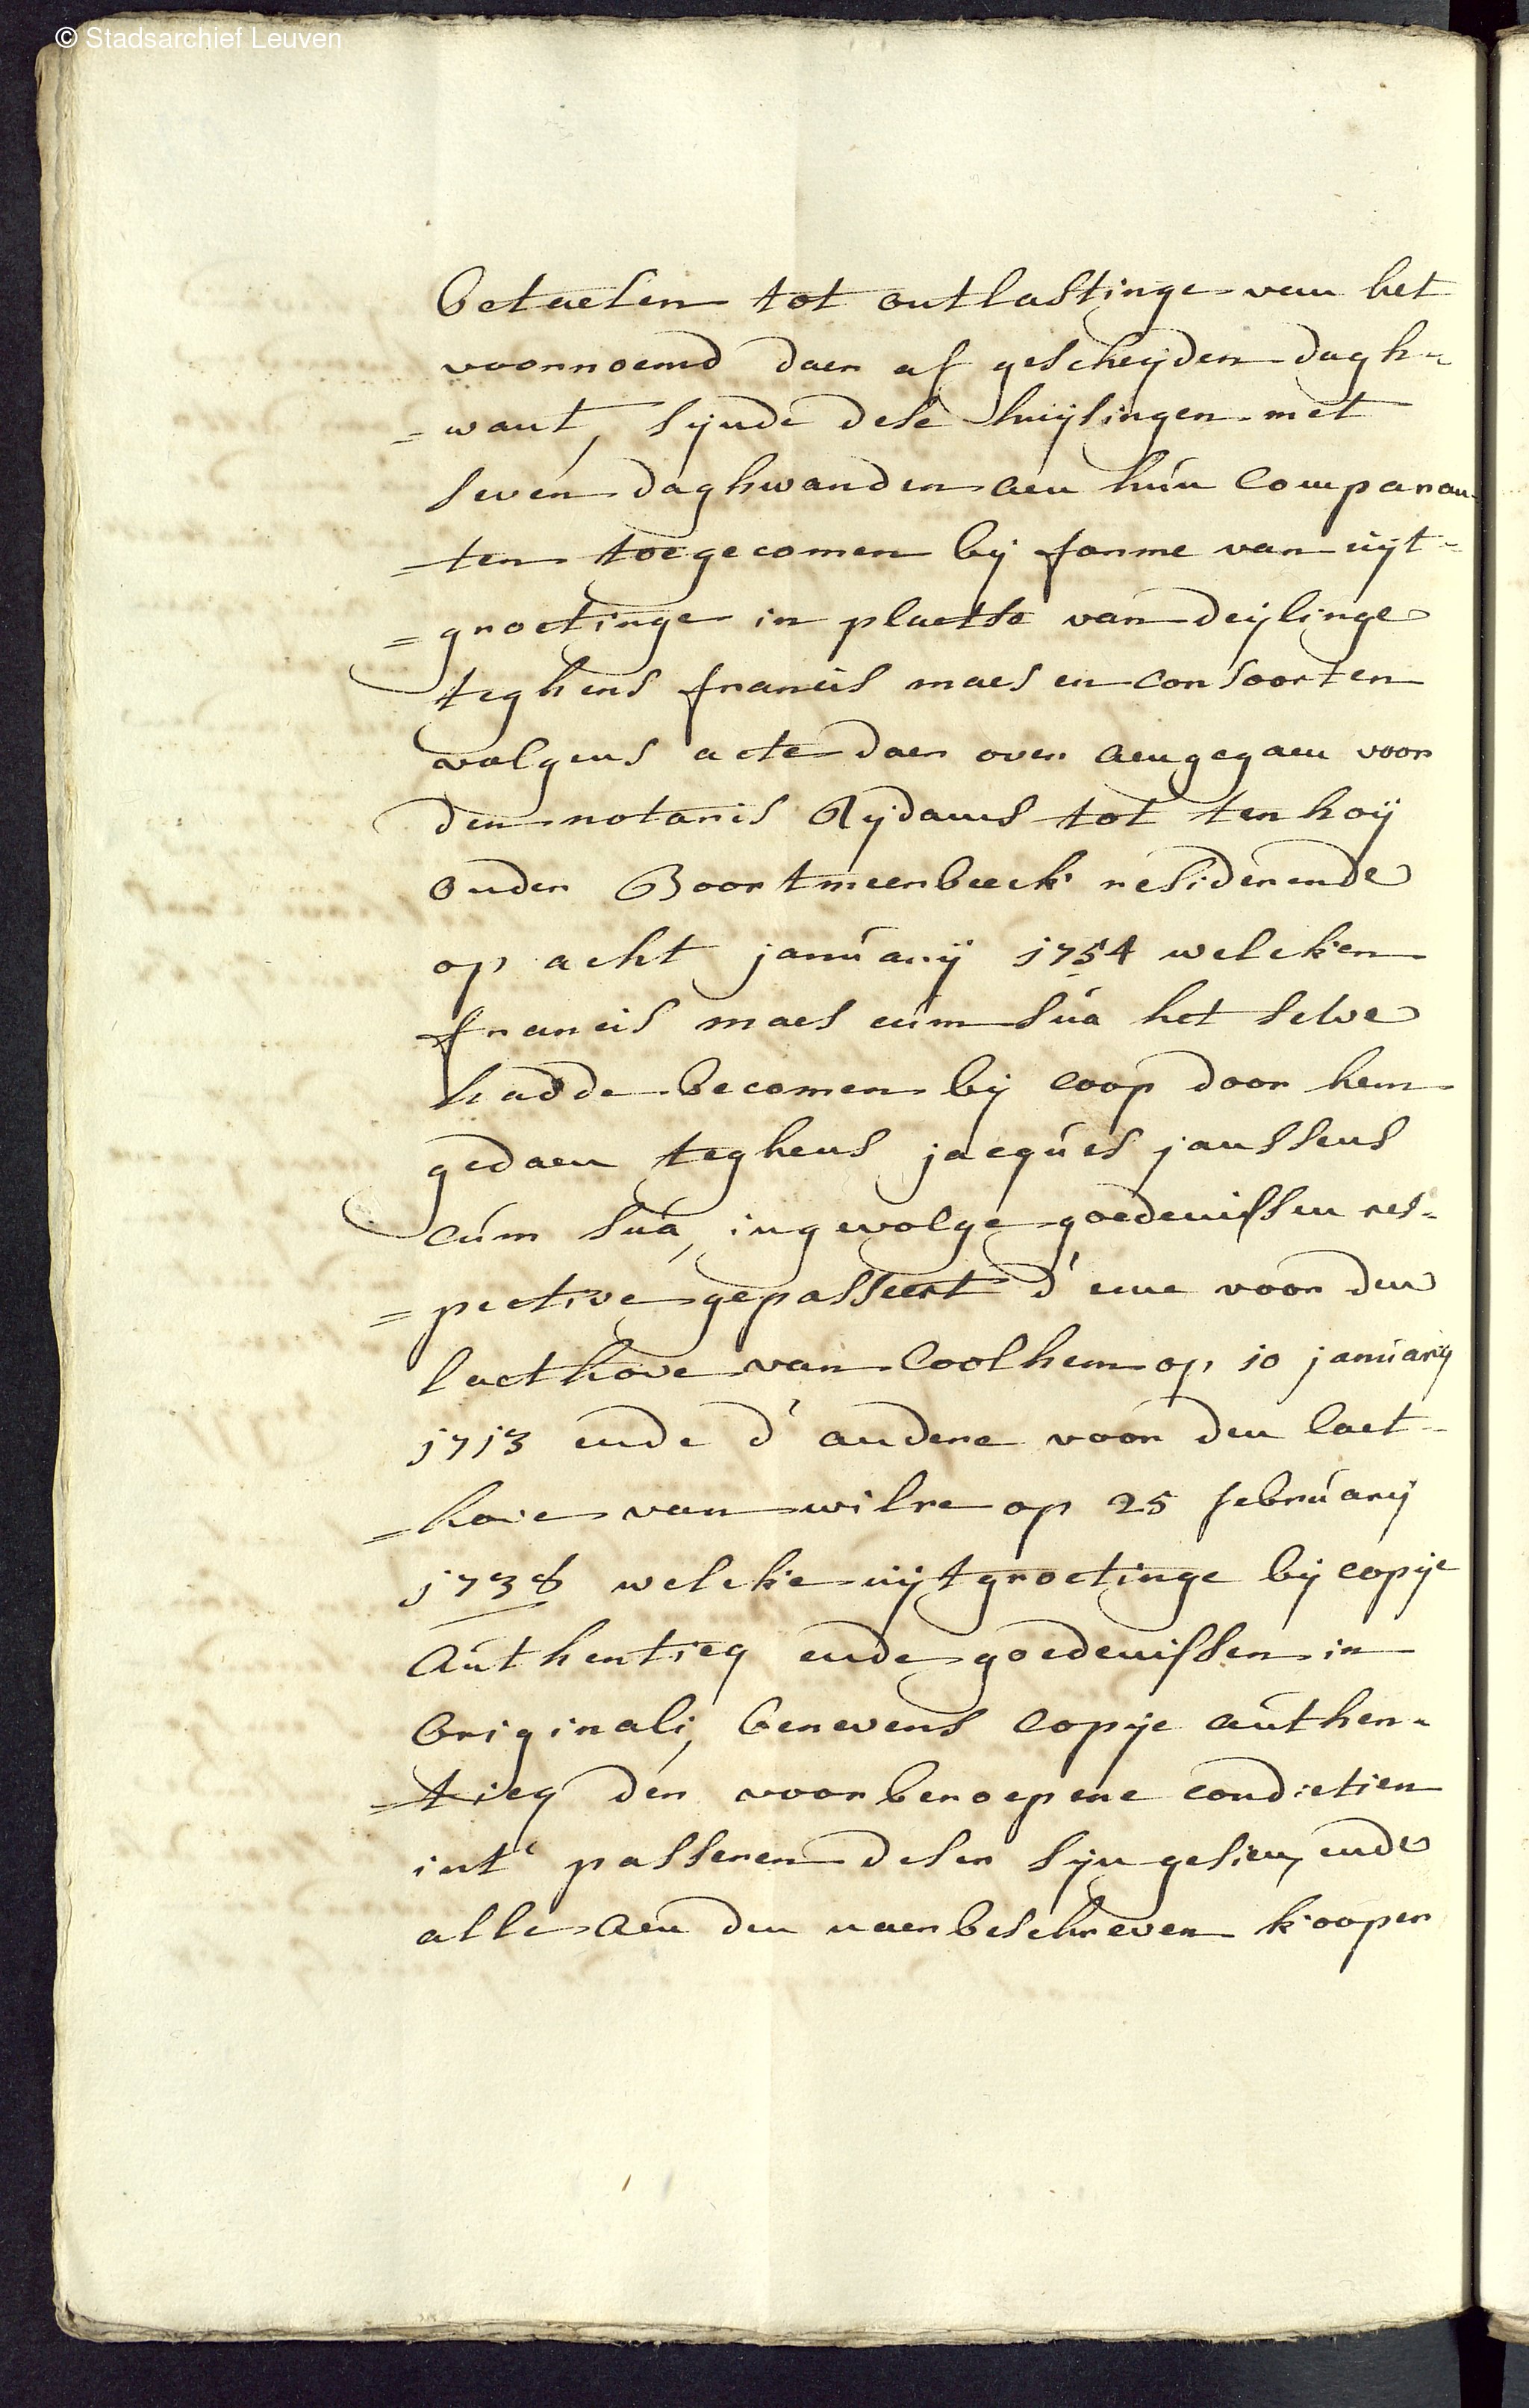 © Stadsarchief Leuven
betaelen tot ontlastinge van het
voornoemd daer af gescheyden dagh-
=want, synde dese huysingen met
seven daghwanden aen hún comparan
=ten toegecomen by forme van uyt=
=groetinge in plaetse van deylinge
teghens francis maes en consoorten
volgens acte daer over aengegaen voor
den notaris Rydams tot ten hoÿ
onder Boortmeerbeeck residerende
op acht janúarÿ 1754 welcken
francis maes cúm súa het selve
hadde becomen by coop door hem
gedaen teghens jacqúes janssens
cúm súa, ingevolge goedenissen res-
=pective gepasseert d'eene voor den
laethove van Coolhem op 10 janúarÿ
1713 ende d'andere voor den laet-
=hove van wilre op 25 februarÿ
1738 welcke uytgroetinge by copye
aúthentieq ende goedenissen in
originali, benevens copye aúthen-
=tieq der voorberoepene condietien
int' passeren deser syn gesien, ende
alle aen den naerbeschreven kooper